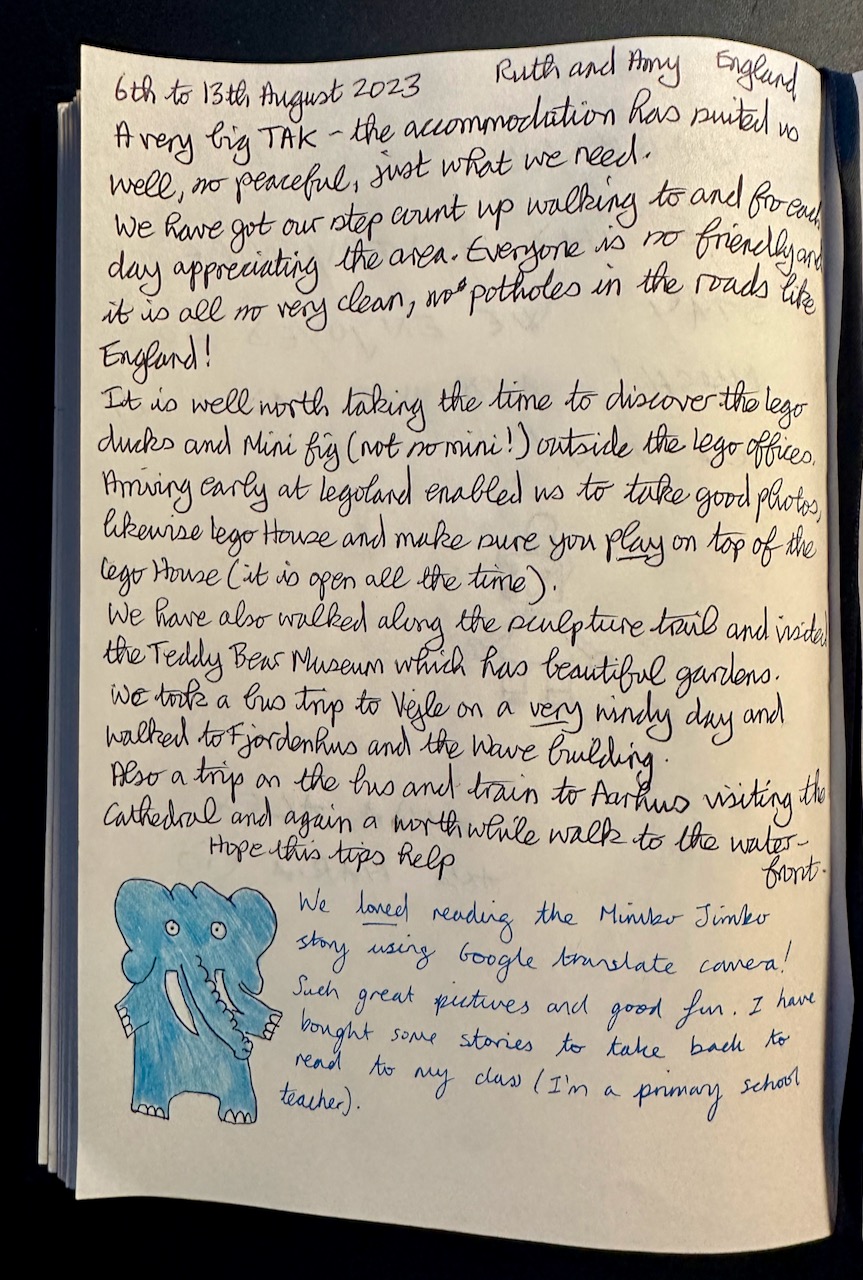 6th to 13th August 2023 Ruth and Amy England
A very big TAK – the accommodation has suited us
well, so peaceful, just what we need.
We have got our step count up walking to and fro each
day appreciating the area. Everyone is so friendly and
it is all so very clean, no potholes in the roads like
England!
It is well worth taking the time to discover the lego
ducks and Mini fig (not so mini!) outside the lego offices.
Arriving early at legoland enabled us to take good photos,
likewise lego House and make sure you play on top of the
Lego House (it is open all the time).
We have also walked along the sculpture trail and visited
the Teddy Bear Museum which has beautiful gardens.
We took a bus trip to Vejle on a very windy day and
walked to Fjordenhus and the Wave building.
Also a trip on the bus and train to Aarhus visiting the
Cathedral and again a worthwhile walk to the water-
front.
Hope this tips help
We loved reading the Mimbo Jimbo
story using Google translate camera!
Such great pictures and good fun. I have
bought some stories to take back to
read to my class (I'm a primary school
teacher).